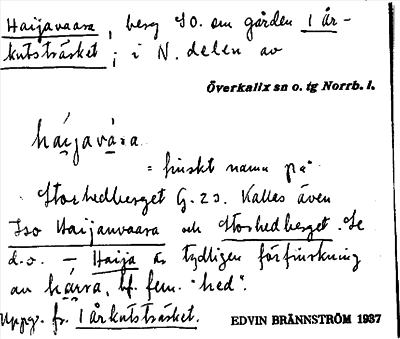 Haijavaara, berg SO. om gården 1 år-
kutsträsket; i N. delen av
Överkalix sn o. tg Norrb. l.
háijavàra
= finskt namn på
Storhedberget G.23. Kalles även
Iso Haijanvaara och Storhedberget. Se
d.o. — Haija är tydligen förfinskning
av hárra, bf. fem. "hed".
Uppg. fr. 1 årkutsträsket. EDVIN BRÄNNSTRÖM 1937